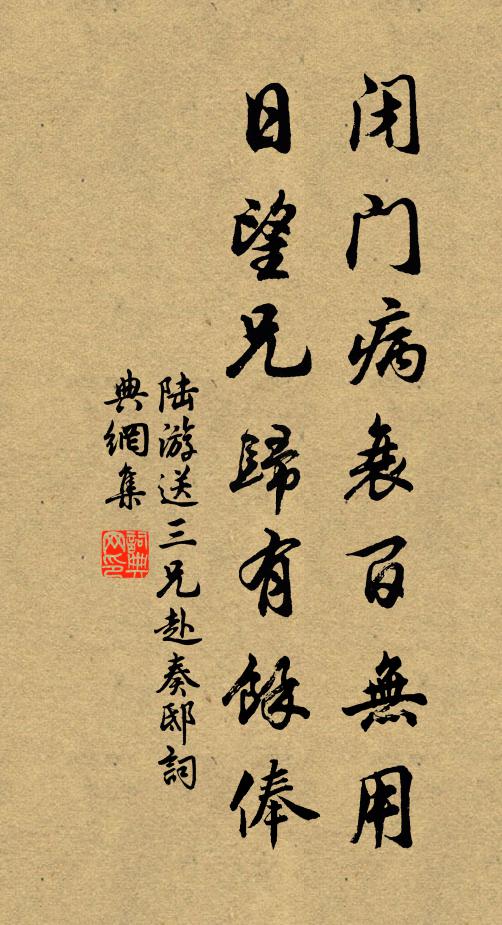 闭门病衰百無用
日望兄歸有餘俸
陸游送三兄赴奏邸詞
典網集
詞典
网印